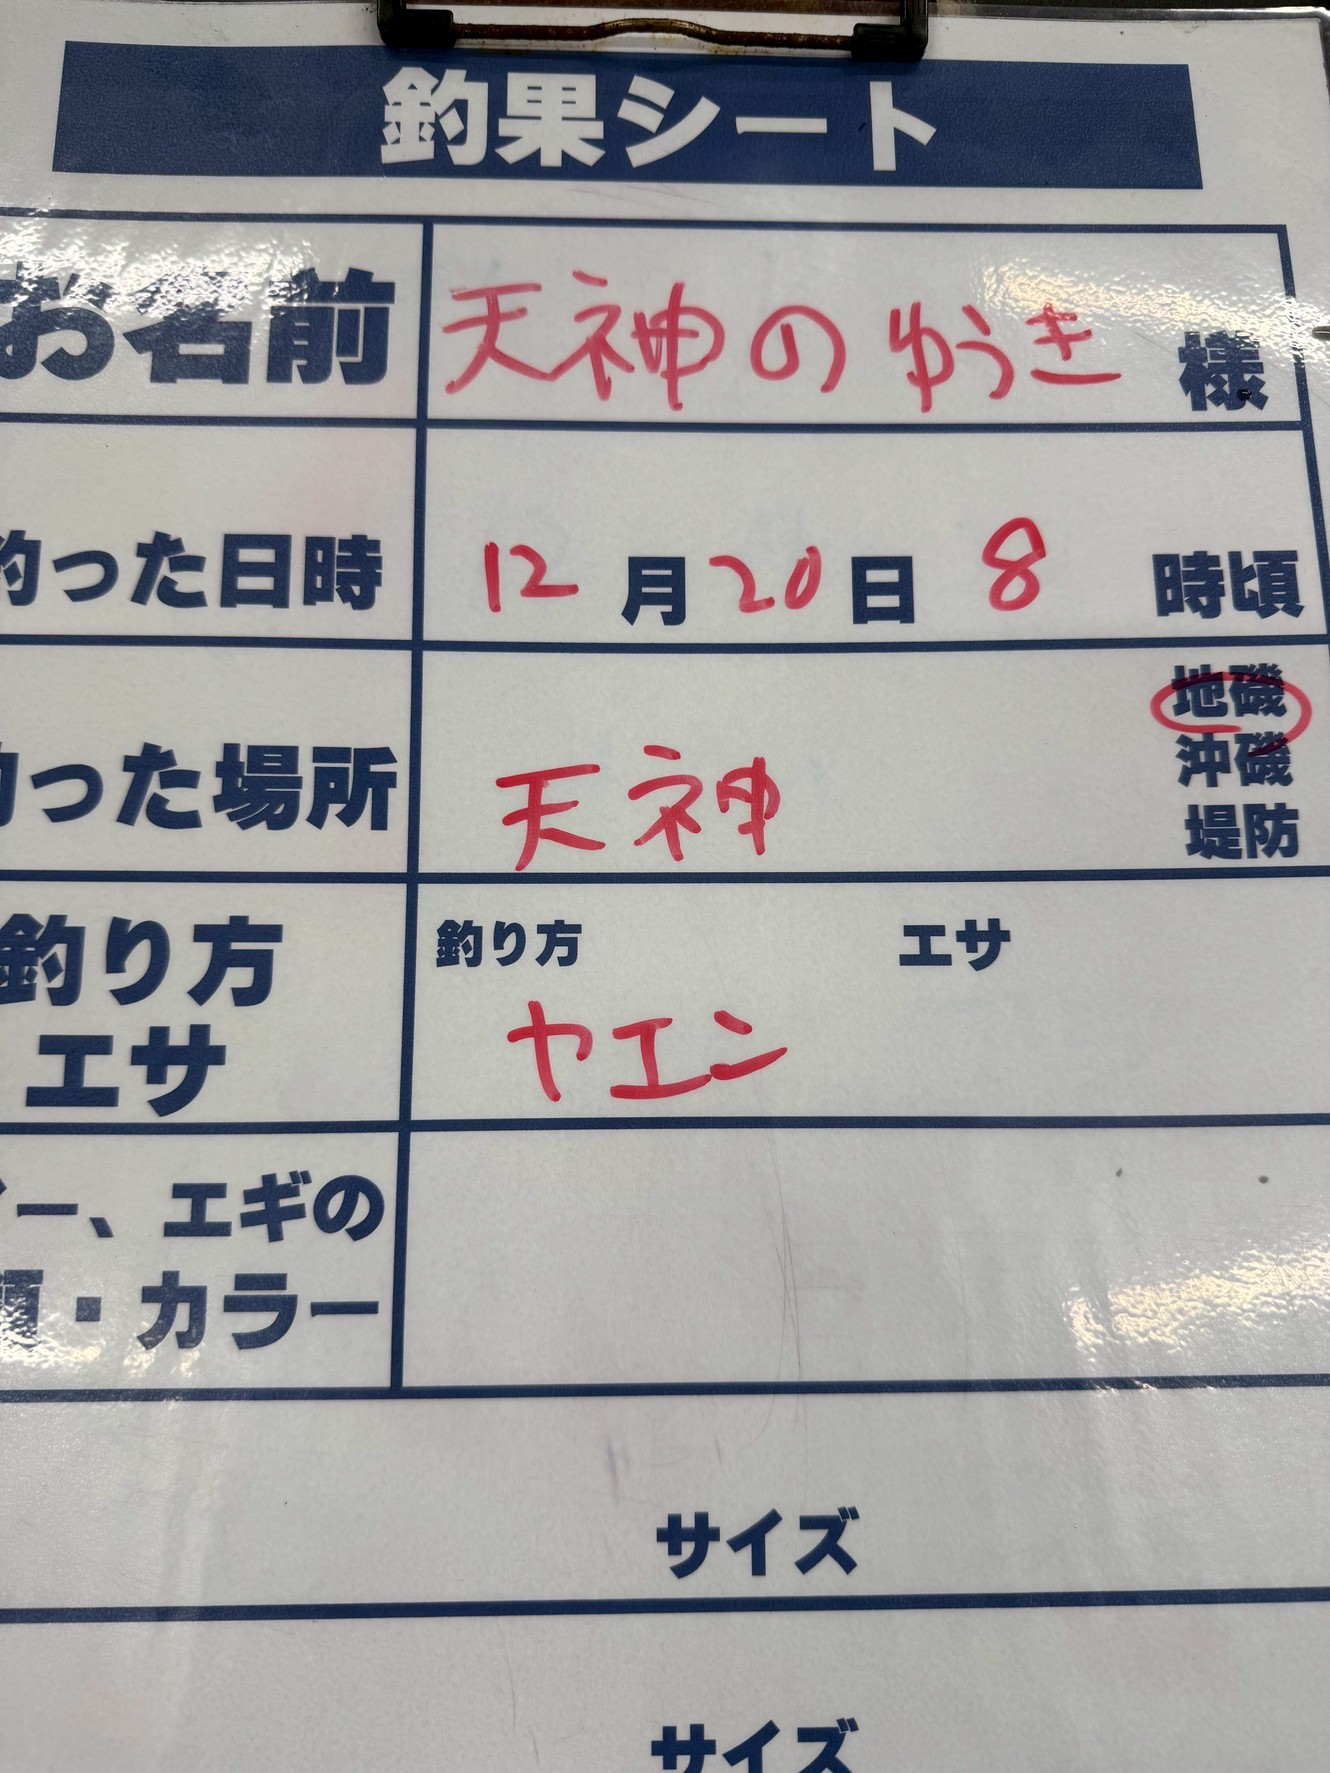 釣果シート
お名前 天神のゆうき 様
釣った日時 12月20日 8 時頃
地磯
沖磯
った場所 天神
堤防
釣り方 釣り方 エサ
エサ ヤエン
ー、エギの
・カラー
サイズ
サイズ